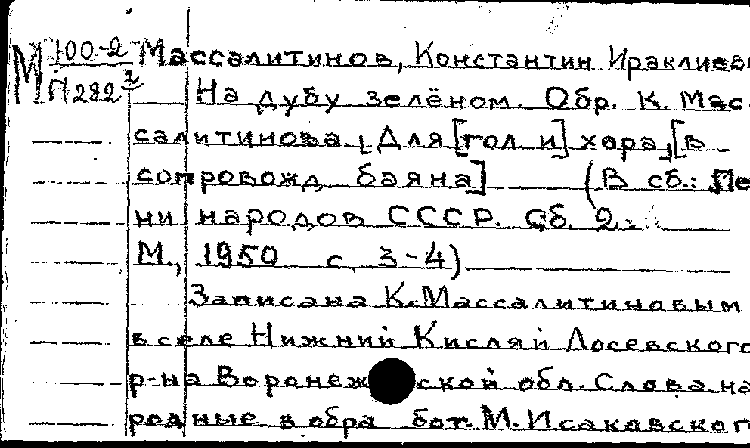 М 100-2 Массалитинов, Константин Ираклиев
П282² На дубу зелёном. Обр. К. Мас-
салитинова. Для [гол и] хора, [в
сопровожд баяна] (В сб.: Пе
ни народов СССР. Сб. 2.
М., 1950 с. 3-4)
Записана К. Массалитиновым
в селе Нижний Кисляй Лосевского
р-на Воронежской обл. Слова на
родные в обра бот. М. Исаковског